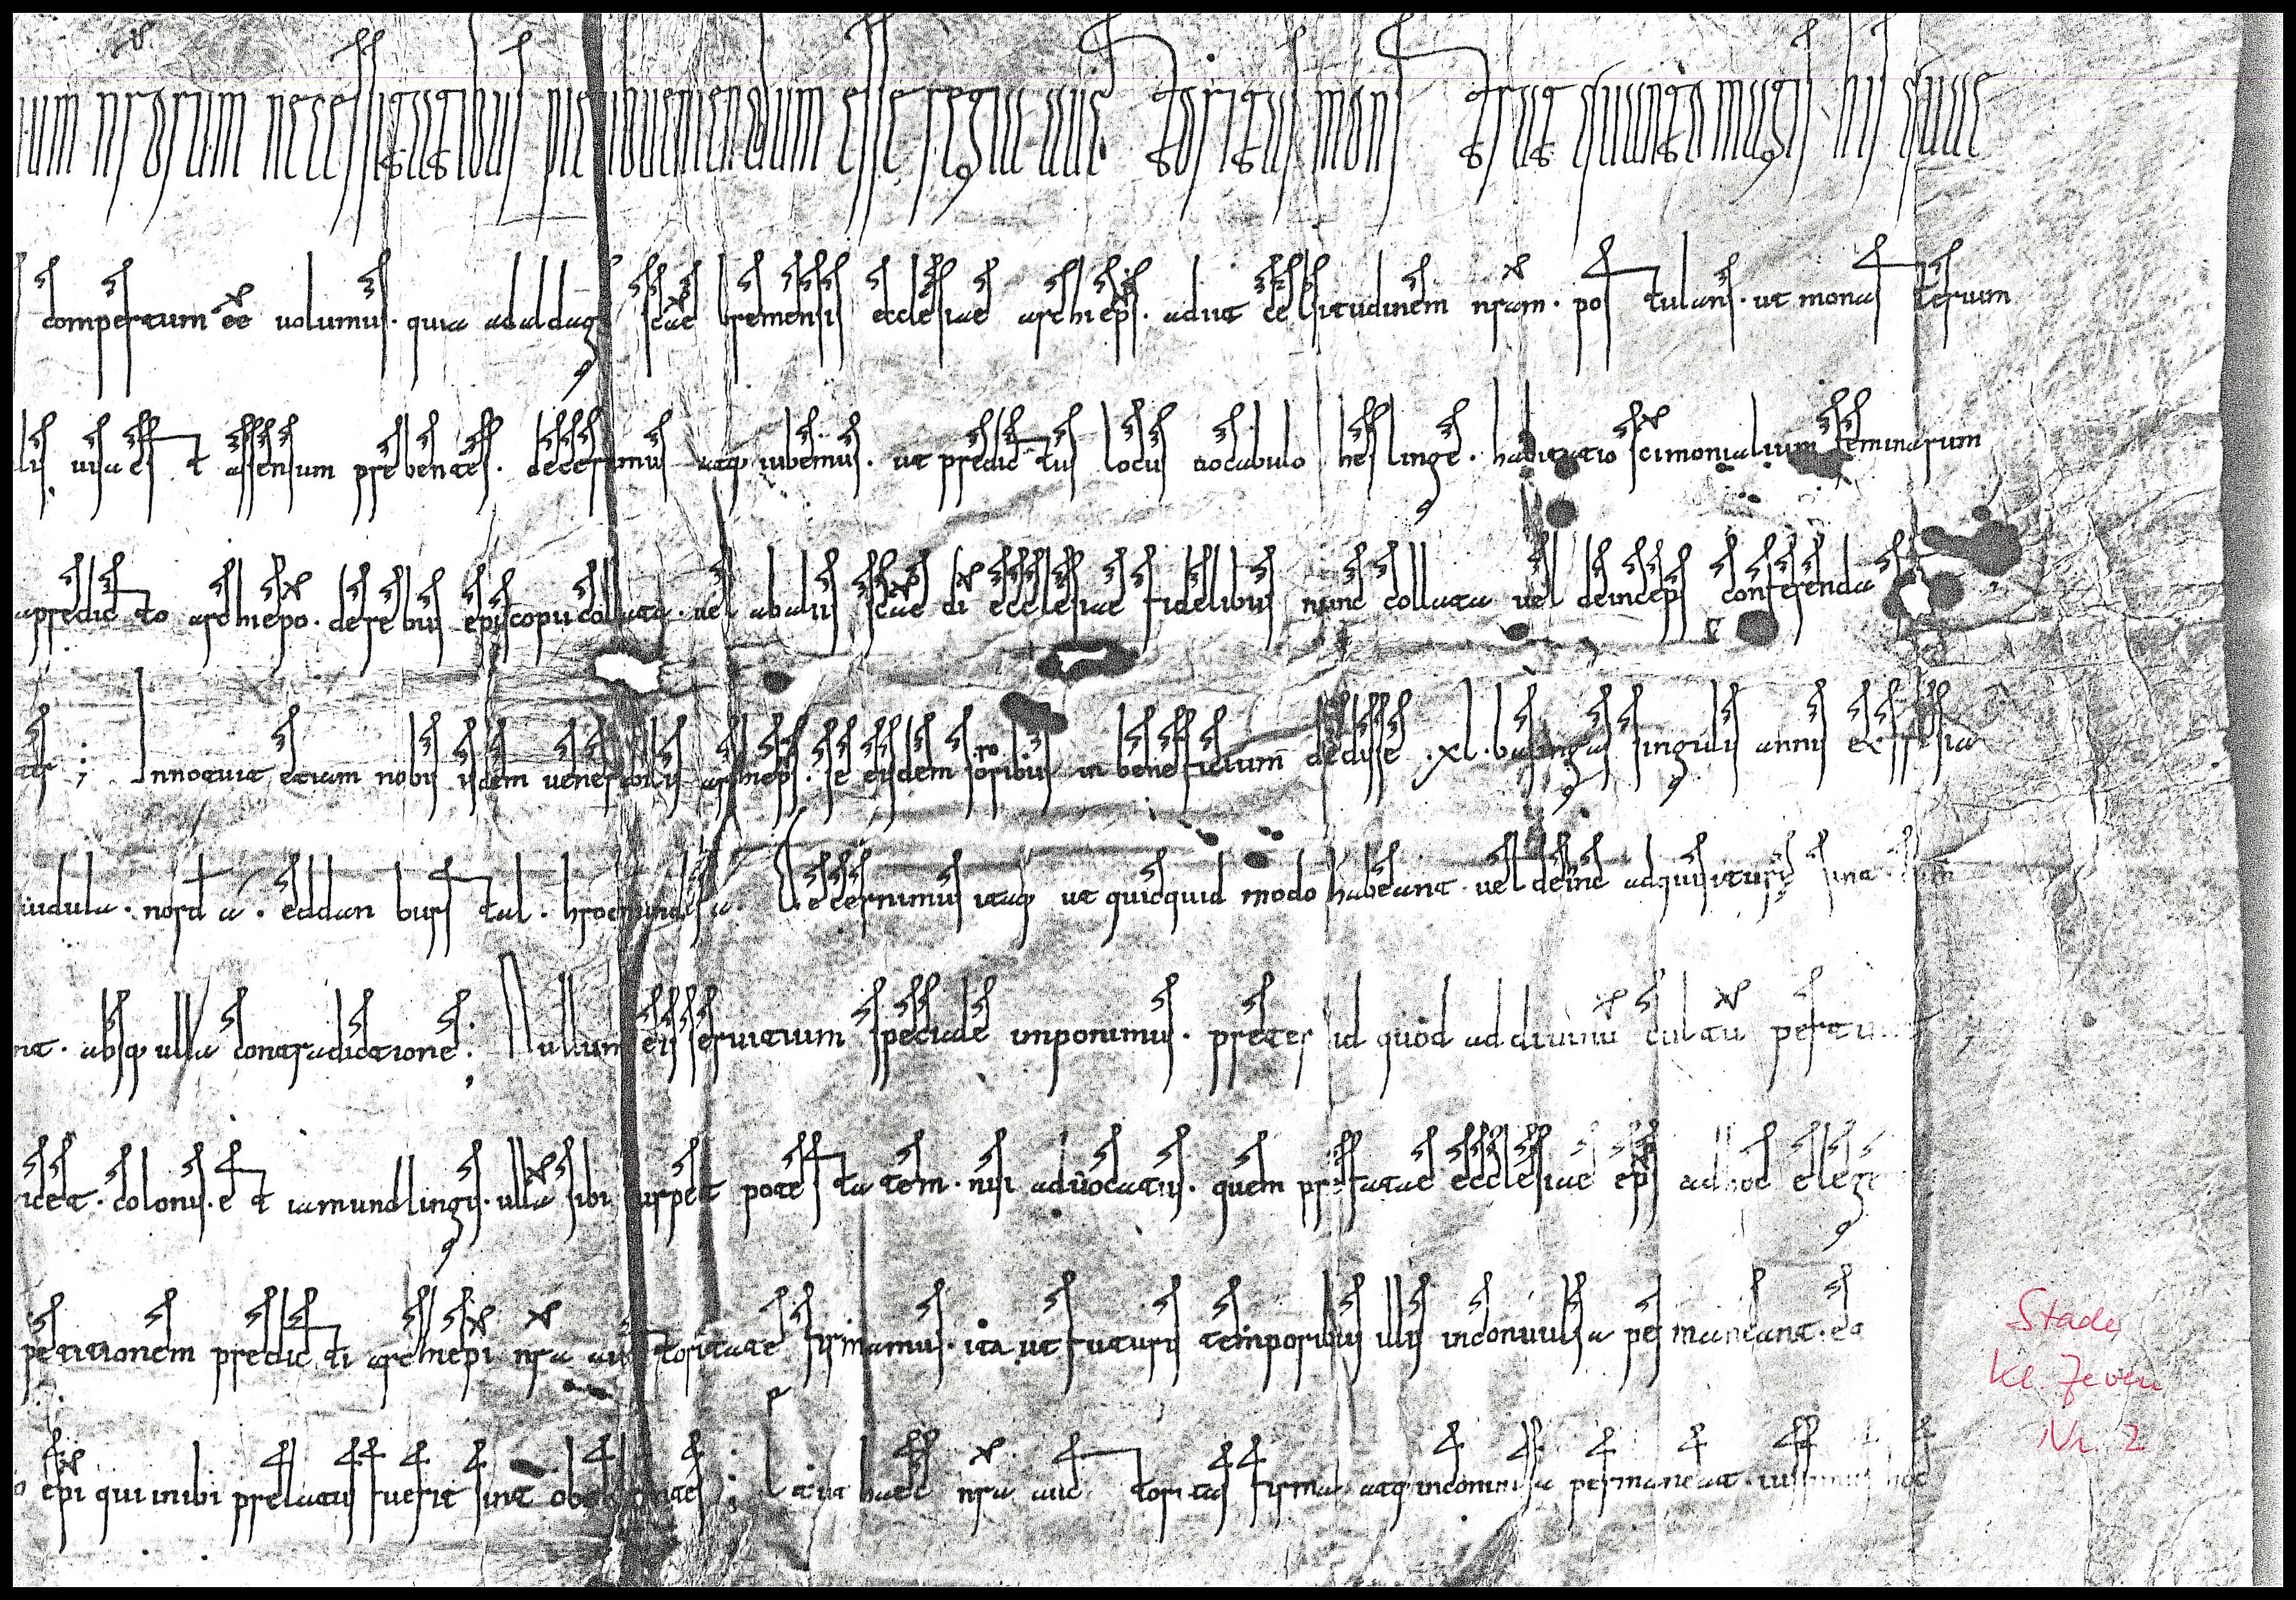 num nrorum necessitatibus pie subueniendum esse regia aucto ritas mons trat quanto magis his quae
compertum eē uolumus. quia adaldag scae bremensis ecclesiae archieps. adiit celsitudinem nram. postulans. ut monasterium
lis uisa est assensum prebentes. decernimus atq iubemus. ut predictus locus uocabulo heslinge. habitatio scimonialium feminarum
apredicto archiepo. de rebus episcopii collata. uel ab aliis scae di ecclesiae fidelibus nunc collata uel deinceps conferenda
Innotuit etiam nobis isdem uenerabilis archieps. se eisdem sororibus in beneficium dedisse .xl. basingas singulis annis ex frisia
uidula. nord a. eddan burstal. hrocmundes a. Decernimus itaq ut quicquid modo habeant. uel deinc adquisituri sint. cum
nt. absq ulla contradictione. Nullum eis seruitium speciale imponimus. preter id quod ad diuinū cultū pertin
icet. colonis. et iamundlingis. ullā sibi usurpet potestatem. nisi aduocatus. quem prefatae ecclesiae eps ad hoc eleg
petitionem predicti archiepi nra auctoritate firmamus. ita ut futuris temporibus illis inconuulsa permaneant. ea
epi qui inibi prelatus fuerit sint obedientes; Et ut haec nra auctoritas firma atq inconuulsa permaneat. iussimus hoc
Stade
Kl. Zeven
Nr. 2